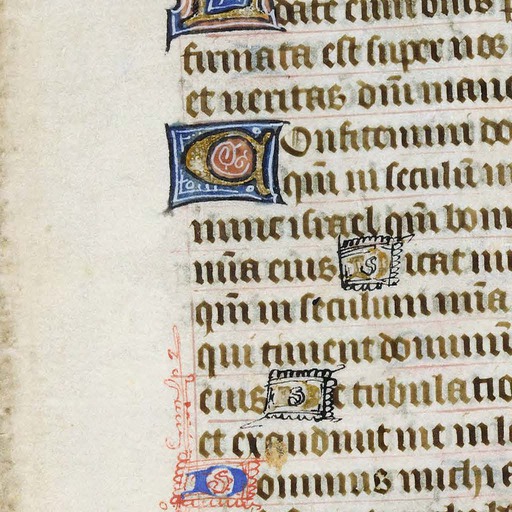 firmata est super nos
et ueritas dn̄i mane
Confitemini do
qm̄ in seculū m
nunc israel qm̄ bon
mīa eius Dicat nu
qm̄ in seculum mīa
qui timent dominū
eius De tribulatio
et exaudiuit me in l
Dominus michi